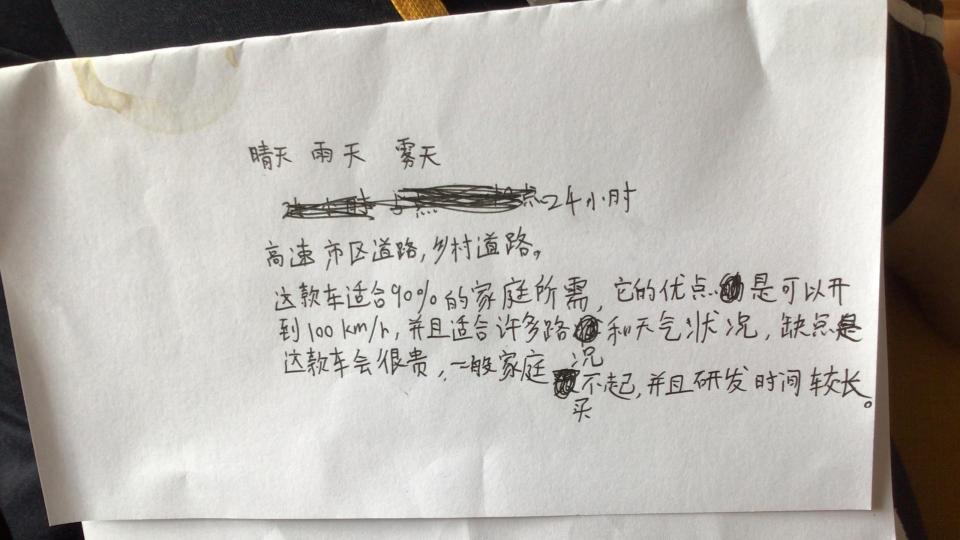 晴天 雨天 雾天
24小时
高速 市区道路,乡村道路。
这款车适合90%的家庭所需,它的优点是可以开
到100km/h,并且适合许多路况和天气状况,缺点是
这款车会很贵,一般家庭买不起,并且研发时间较长。